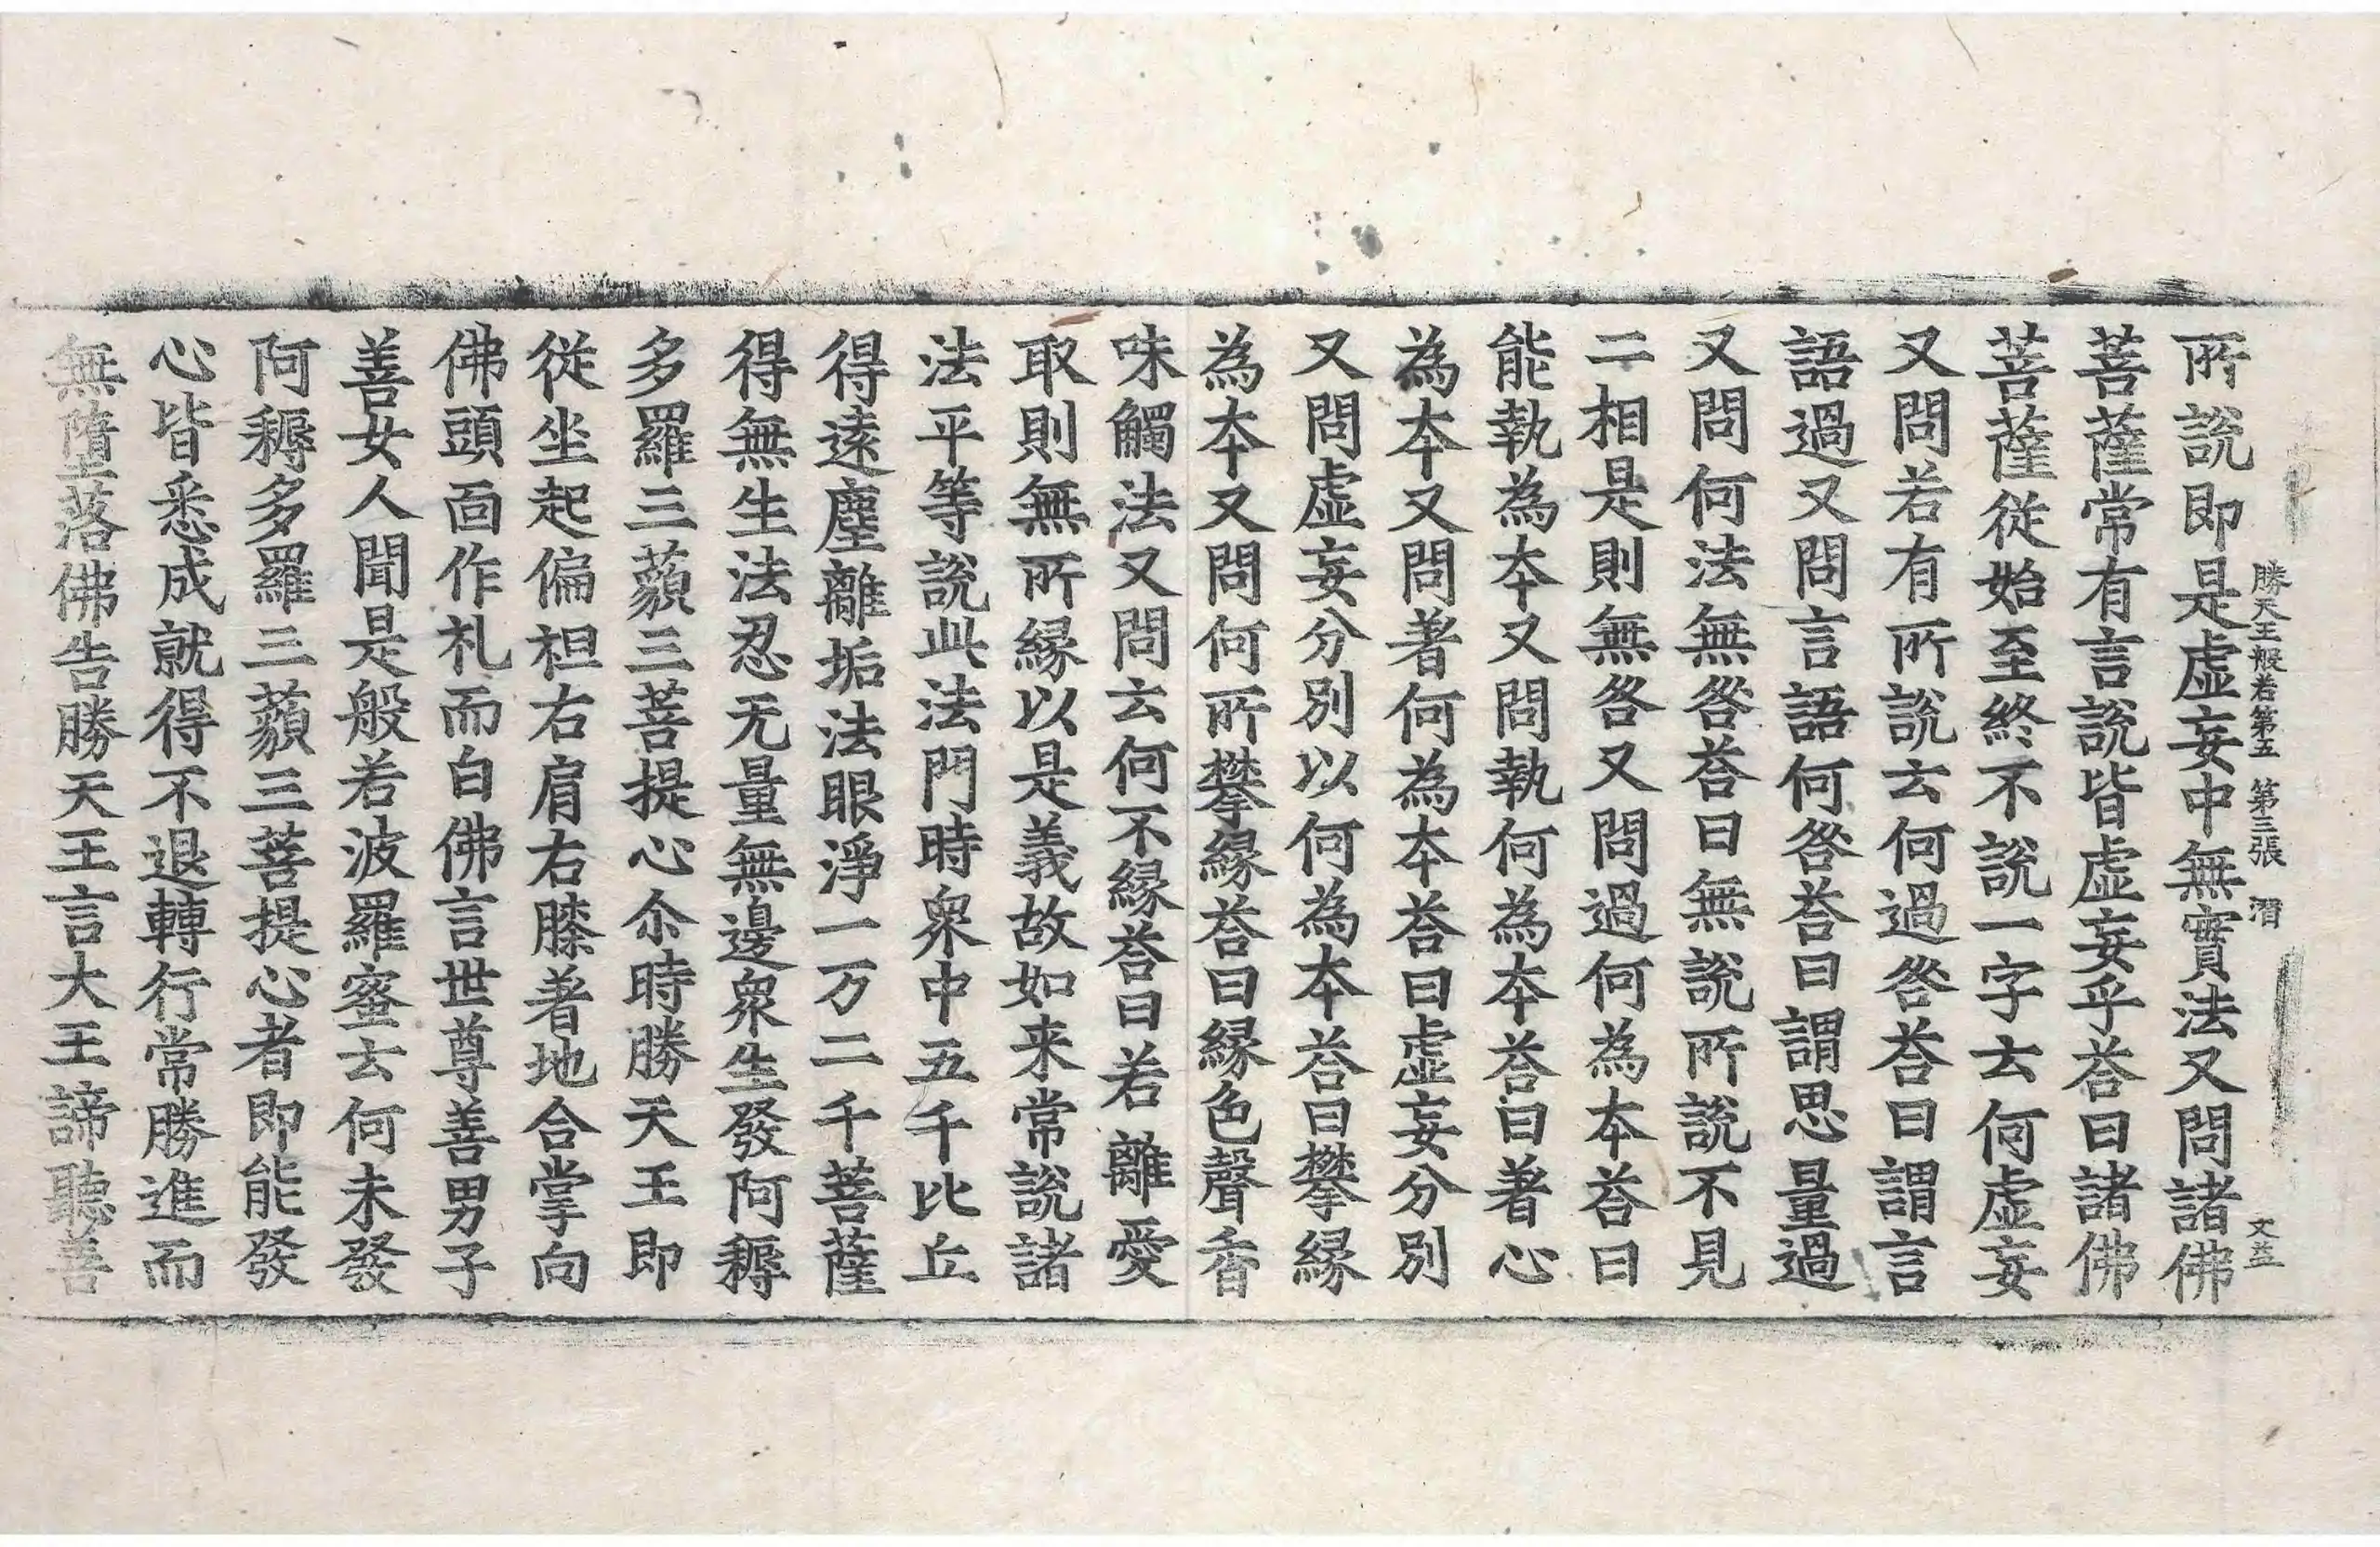 勝天王般若第五　第三張　潛　文益
所說即是虛妄中無實法又問諸佛
菩薩常有言說皆虛妄乎荅曰諸佛
菩薩從始至終不說一字去何虛妄
又問若有所說去何過咎荅曰謂言
語過又問言語何咎荅曰謂思量過
又問何法無咎荅曰無說所說不見
二相是則無咎又問過何為本荅曰
能執為本又問執何為本荅曰著心
為本又問著何為本荅曰虛妄分別
又問虛妄分別以何為本荅曰攀緣
為本又問何所攀緣荅曰緣色聲香
味觸法又問去何不緣荅曰若離愛
取則無所緣以是義故如来常說諸
法平等說此法門時衆中五千比丘
得遠塵離垢法眼淨一万二千菩薩
得無生法忍无量無邊衆生發阿耨
多羅三藐三菩提心尒時勝天王即
從坐起偏袒右肩右膝著地合掌向
佛頭面作礼而白佛言世尊善男子
善女人聞是般若波羅蜜去何未發
阿耨多羅三藐三菩提心者即能發
心皆悉成就得不退轉行常勝進而
無墮落佛告勝天王言大王諦聽善